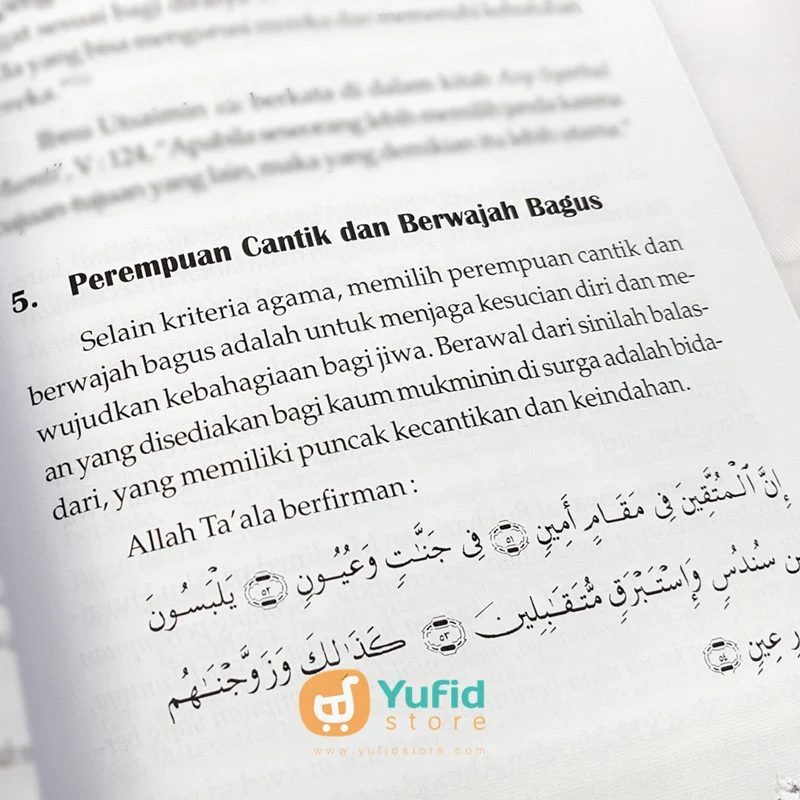 sesuai bagi
yang bisa mengurusi mereka dan memenuhi kebutuhan
Ibnu Utsaimin berkata di dalam kitab Asy-Syarhul
Mumti', V : 124, "Apabila seseorang lebih memilih janda karena
tujuan-tujuan yang lain, maka yang demikian itu lebih utama."
5. Perempuan Cantik dan Berwajah Bagus
Selain kriteria agama, memilih perempuan cantik dan
berwajah bagus adalah untuk menjaga kesucian diri dan me-
wujudkan kebahagiaan bagi jiwa. Berawal dari sinilah balas-
an yang disediakan bagi kaum mukminin di surga adalah bida-
dari, yang memiliki puncak kecantikan dan keindahan.
Allah Ta'ala berfirman :
إِنَّ الْمُتَّقِينَ فِى مَقَامٍ أَمِينٍ ٥١ فِى جَنَّٰتٍ وَعُيُونٍ ٥٢ يَلْبَسُونَ
سُندُسٍ وَإِسْتَبْرَقٍ مُّتَقَٰبِلِينَ ٥٣ كَذَٰلِكَ وَزَوَّجْنَٰهُم
عِينٍ ٥٤
Yufid
store
www.yufidstore.com